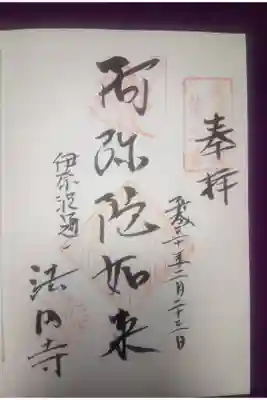 奉拝
平成三十年二月二十三日
阿弥陀如来
伊奈波通一
法円寺